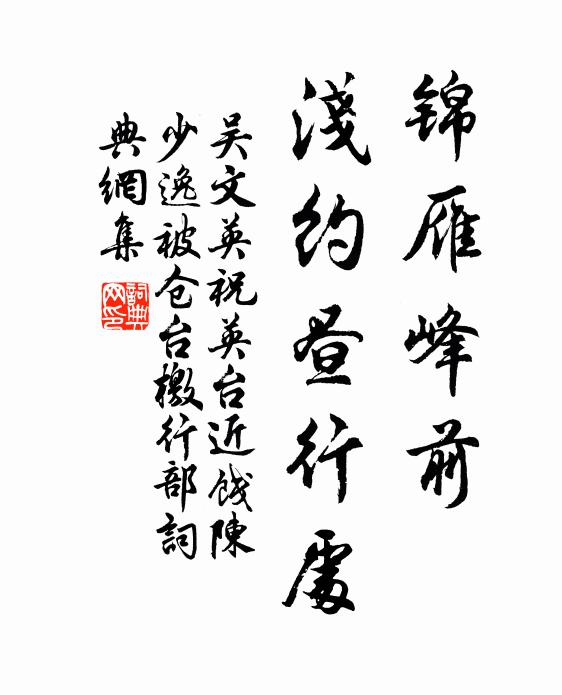 锦雁峰前
淺約昼行處
吴文英祝英台近餞陳
少逸被仓台檄行部詞
典網集
詞典
网印